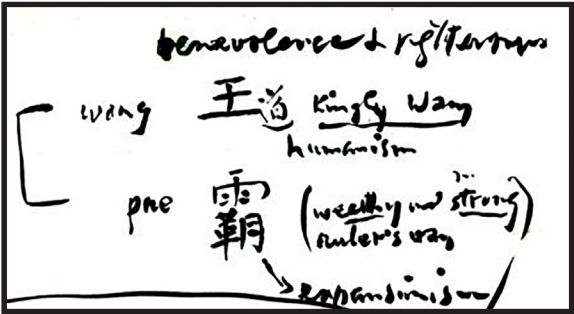 benevolence & righteousness
wang 王道 Kingly Wang
humanism
霸 (wealthy and strong)
ruler's way
expansionism